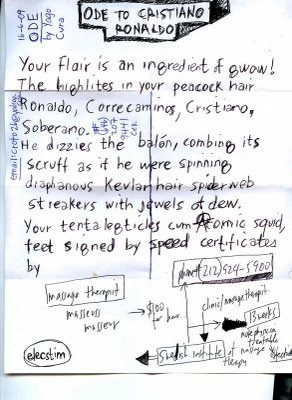 ODE TO CRISTIANO
RONALDO
16-6-09
ODE
by Yago
Cura
Your Flair is an ingredient of gwow!
The highlites in your peacock hair
Ronaldo, Correcaminos, Cristiano,
Soberano.
He dizzies the balón, combing its
scruff as if he were spinning
diaphanous Kevlar hair spiderweb
streakers with jewels of dew.
Your tentalegticles cum Atomic squid,
feet signed by speed certificates
by
(212) 924-5900
massage therapist
masseuss
masseur
$100
per hour
clinic/massage therapist
13 weeks
Swedish institute
of massage
therapy
elecstim